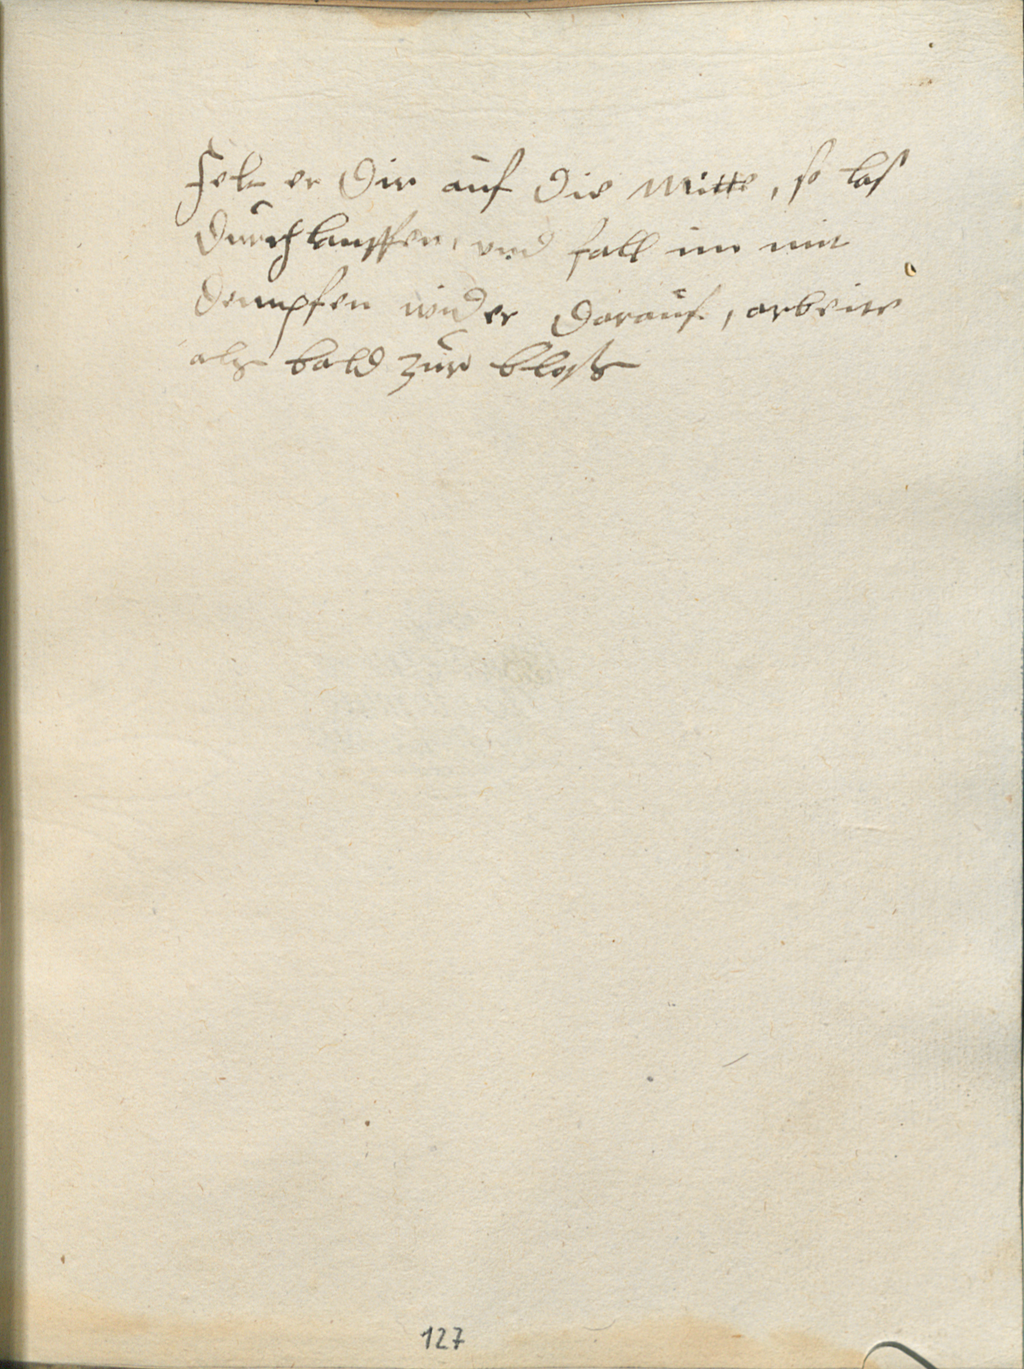 Felt er dir auf die Mitte, so las
durchlauffen, und fall im mit
dempfen wider darauf, arbeite
als bald zur blosß
127